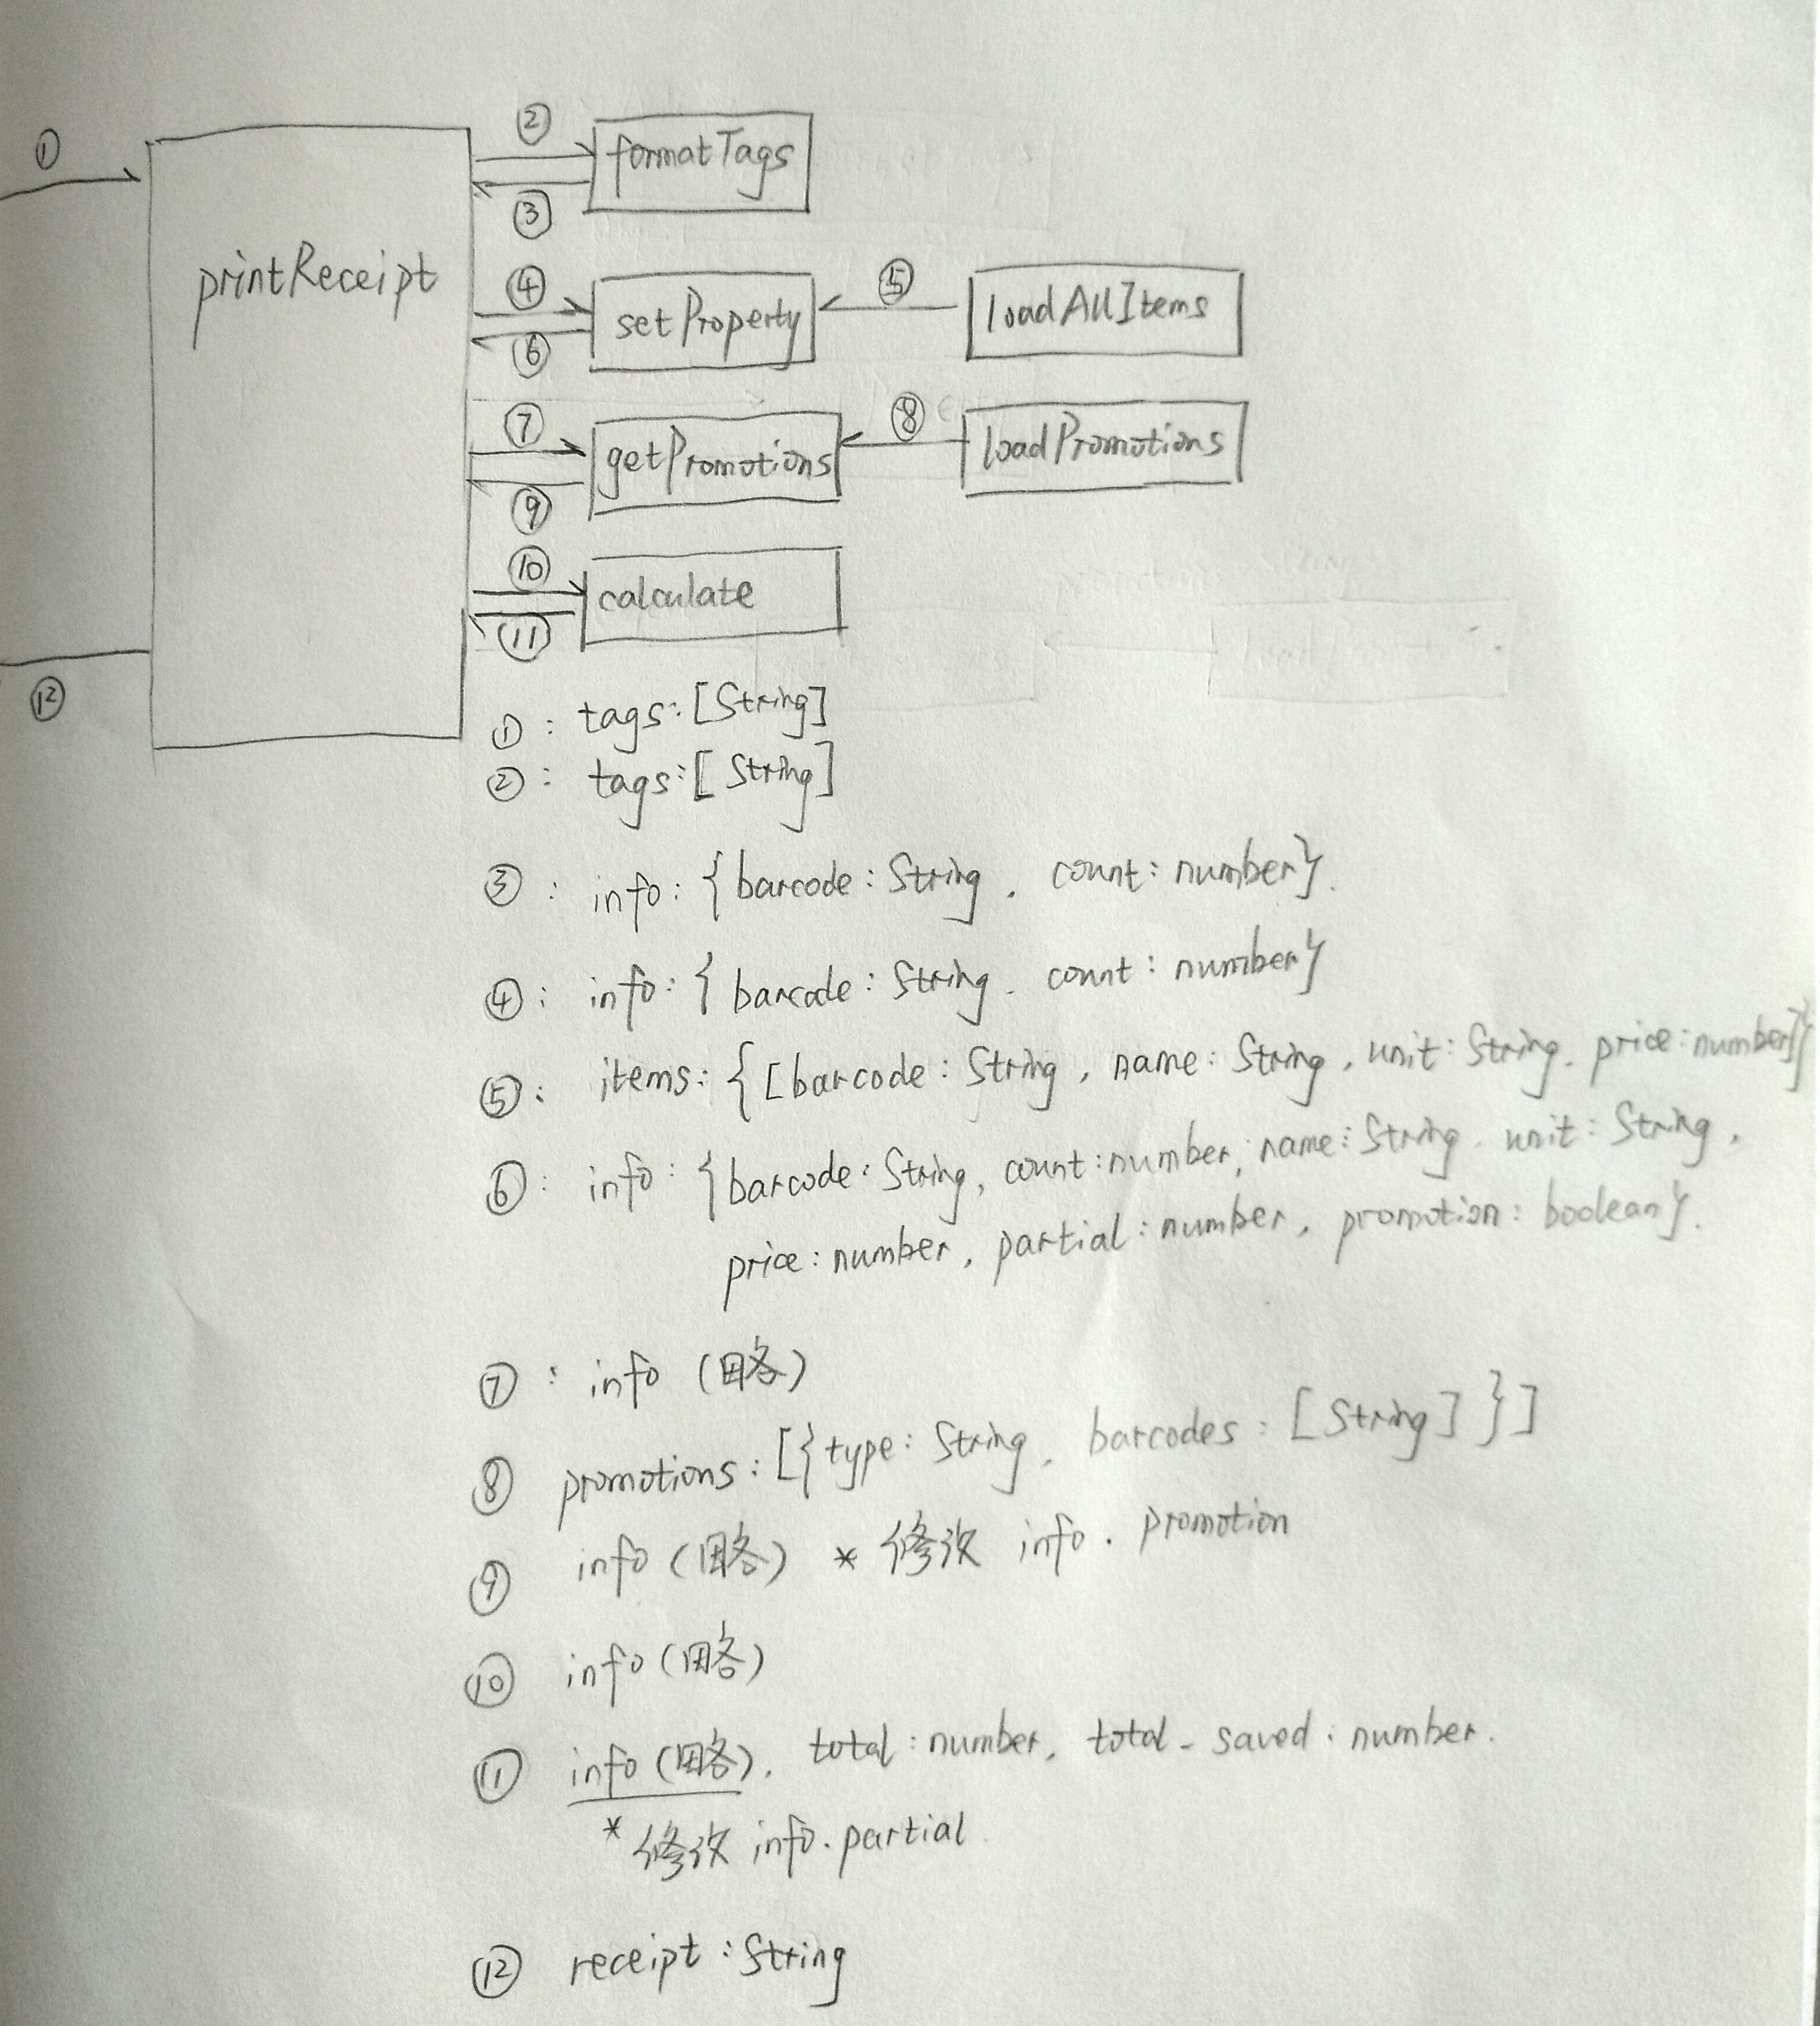 ①
②
formatTags
③
printReceipt
④
setProperty
⑤
loadAllItems
⑥
⑦
getPromotions
⑧
loadPromotions
⑨
⑩
calculate
⑪
⑫
①: tags:[String]
②: tags:[String]
③: info:{barcode:String, count:number}.
④: info:{barcode:String, count:number}
⑤: items:{[barcode:String, name:String, unit:String, price:number]}
⑥: info:{barcode:String, count:number, name:String, unit:String,
price:number, partial:number, promotion:boolean}.
⑦: info (略)
⑧ promotions:[{type:String, barcodes:[String]}]
⑨ info (略) * 修改 info.promotion
⑩ info (略)
⑪ info (略), total:number, total_saved:number.
* 修改 info.partial
⑫ receipt:String